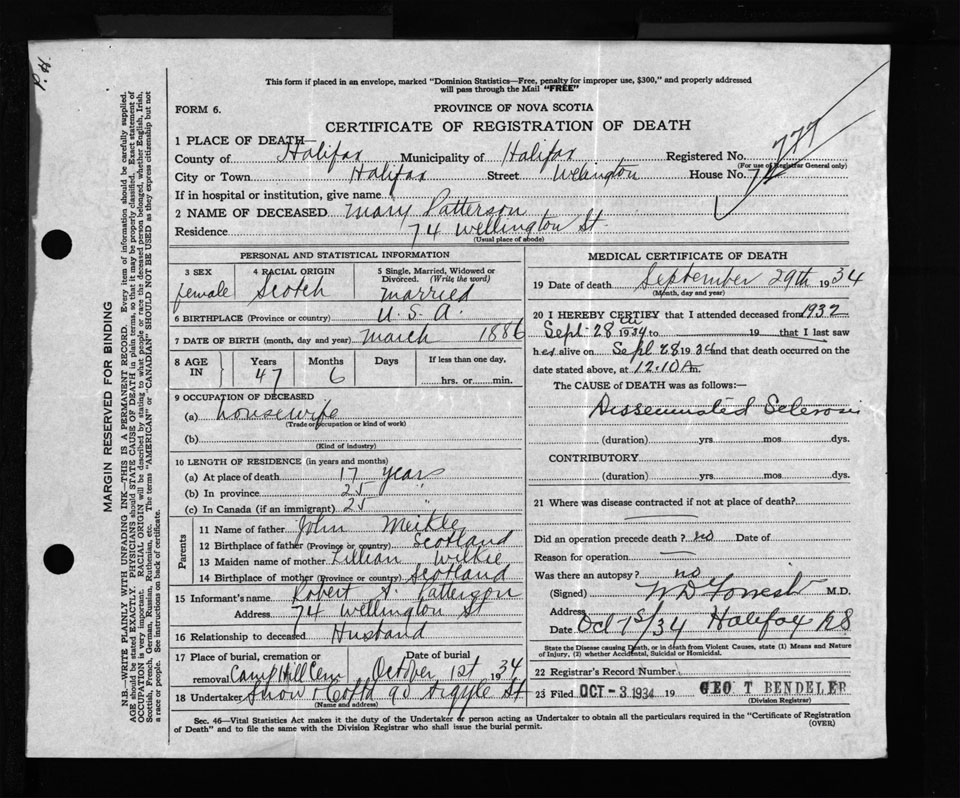 P.H.
This form if placed in an envelope, marked "Dominion Statistics—Free, penalty for improper use, $300," and properly addressed
will pass through the Mail "FREE"
FORM 6. PROVINCE OF NOVA SCOTIA
CERTIFICATE OF REGISTRATION OF DEATH
1 PLACE OF DEATH—
County of Halifax Municipality of Halifax Registered No. 777
(For use of Registrar General only)
City or Town Halifax Street Welington House No. 74
If in hospital or institution, give name
2 NAME OF DECEASED Mary Patterson
Residence 74 Wellington St.
(Usual place of abode)
PERSONAL AND STATISTICAL INFORMATION
3 SEX 4 RACIAL ORIGIN 5 Single, Married, Widowed or
Divorced. (Write the word)
female Scotch married
6 BIRTHPLACE (Province or country) U.S.A.
7 DATE OF BIRTH (month, day and year) March 1886
8 AGE IN Years Months Days If less than one day,
47 6 hrs. or min.
9 OCCUPATION OF DECEASED
(a) housewife
(Trade or occupation or kind of work)
(b)
(Kind of industry)
10 LENGTH OF RESIDENCE (in years and months)
(a) At place of death 17 years
(b) In province 25 "
(c) In Canada (if an immigrant) 25 "
Parents
11 Name of father John Meikle
12 Birthplace of father (Province or country) Scotland
13 Maiden name of mother Lillian Wilkie
14 Birthplace of mother (Province or country) Scotland
15 Informant's name Robert A. Patterson
Address 74 Wellington St
16 Relationship to deceased Husband
17 Place of burial, cremation or Date of burial
removal Camp Hill Cem October 1st 1934
18 Undertaker Snow & Co Ltd 90 Argyle St
(Name and address)
MEDICAL CERTIFICATE OF DEATH
19 Date of death September 29th 1934
(Month, day and year)
20 I HEREBY CERTIFY that I attended deceased from 1932
Sept. 28th 1934 to 19 that I last saw
her alive on Sept 28 1934 and that death occurred on the
date stated above, at 12.10 A m.
The CAUSE of DEATH was as follows:—
Disseminated Sclerosis
(duration) yrs. mos. dys.
CONTRIBUTORY
(duration) yrs. mos. dys.
21 Where was disease contracted if not at place of death?
Did an operation precede death? no Date of
Reason for operation
Was there an autopsy? no
(Signed) W D Forrest M.D.
Address
Date Oct 1st/34 Halifax NS
State the Disease causing Death, or in death from Violent Causes, state (1) Means and Nature
of Injury, (2) whether Accidental, Suicidal or Homicidal.
22 Registrar's Record Number
23 Filed OCT -3 1934 19 GEO T BENDELER
(Division Registrar)
Sec. 46—Vital Statistics Act makes it the duty of the Undertaker or person acting as Undertaker to obtain all the particulars required in the "Certificate of Registration
of Death" and to file the same with the Division Registrar who shall issue the burial permit. (OVER)
MARGIN RESERVED FOR BINDING
N.B.—WRITE PLAINLY WITH UNFADING INK—THIS IS A PERMANENT RECORD. Every item of information should be carefully supplied.
AGE should be stated EXACTLY. PHYSICIANS should STATE CAUSE OF DEATH in plain terms, so that it may be properly classified. Exact statement of
OCCUPATION is very important. RACIAL ORIGIN will be described by stating to what people or race the deceased person belonged, whether English, Irish,
Scottish, French, German, Russian, Ruthenian, etc. The terms "AMERICAN" or "CANADIAN" SHOULD NOT BE USED as they express citizenship but not
a race or people. See instructions on back of certificate.